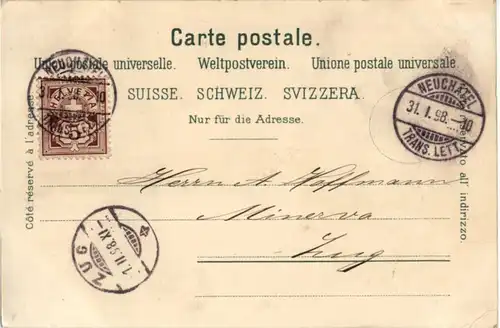 Carte postale.
Union postale universelle. Weltpostverein. Unione postale universale.
SUISSE. SCHWEIZ. SVIZZERA.
Nur für die Adresse.
Côté réservé à l'adresse.
all' indirizzo.
NEUCHATEL
TRANS. LETT.
5
NEUCHATEL
31. I. 98.–10
TRANS. LETT.
Herrn A. Hoffmann
Minerva
Zug
ZUG
1. II. 98. XI